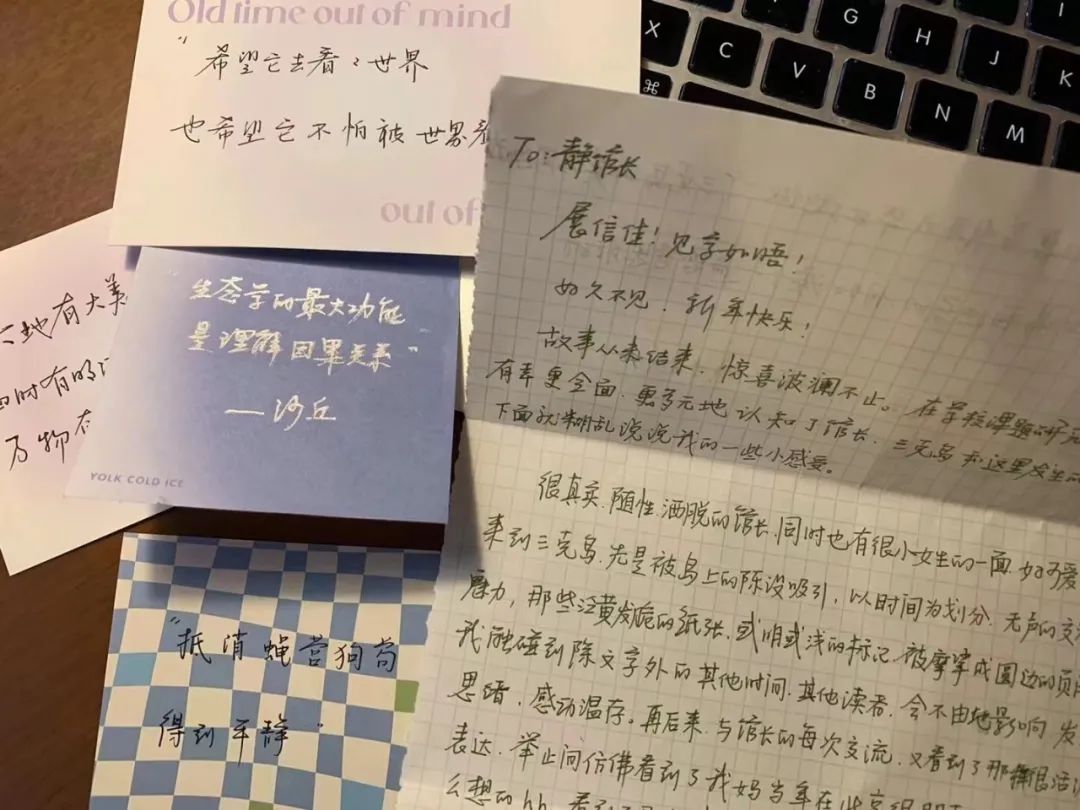 Old time out of mind
“希望它去看看世界
也希望它不怕被世界看
out of
地有大美
四时有明
万物有
“生态学的最大功能
是理解因果关系”
—沙丘
YOLK COLD ICE
“抵消蝇营狗苟
得到平静”
To:静馆长
展信佳!见字如晤!
好久不见,新年快乐!
故事从未结束,惊喜波澜不止。在学校课题研究
有幸更全面、更多元地认知了馆长、三克鸟和这里发生的
下面就糊乱说说我的一些小感受。
很真实、随性、洒脱的馆长,同时也有很小女生的一面,如可爱
来到三克鸟,先是被鸟上的陈设吸引,以时间为划分,无声的交
魔力,那些泛黄发脆的纸张、或明或浅的标记、被摩挲成圆边的页
我触碰到除文字外的其他时间、其他读者,会不由地影响、发
思绪,感动温存。再后来,与馆长的每次交流,又看到了那种很活
表达,举止间仿佛看到了我妈当年在北京
么想的hh,
X C V B N M G H J K I
⌘